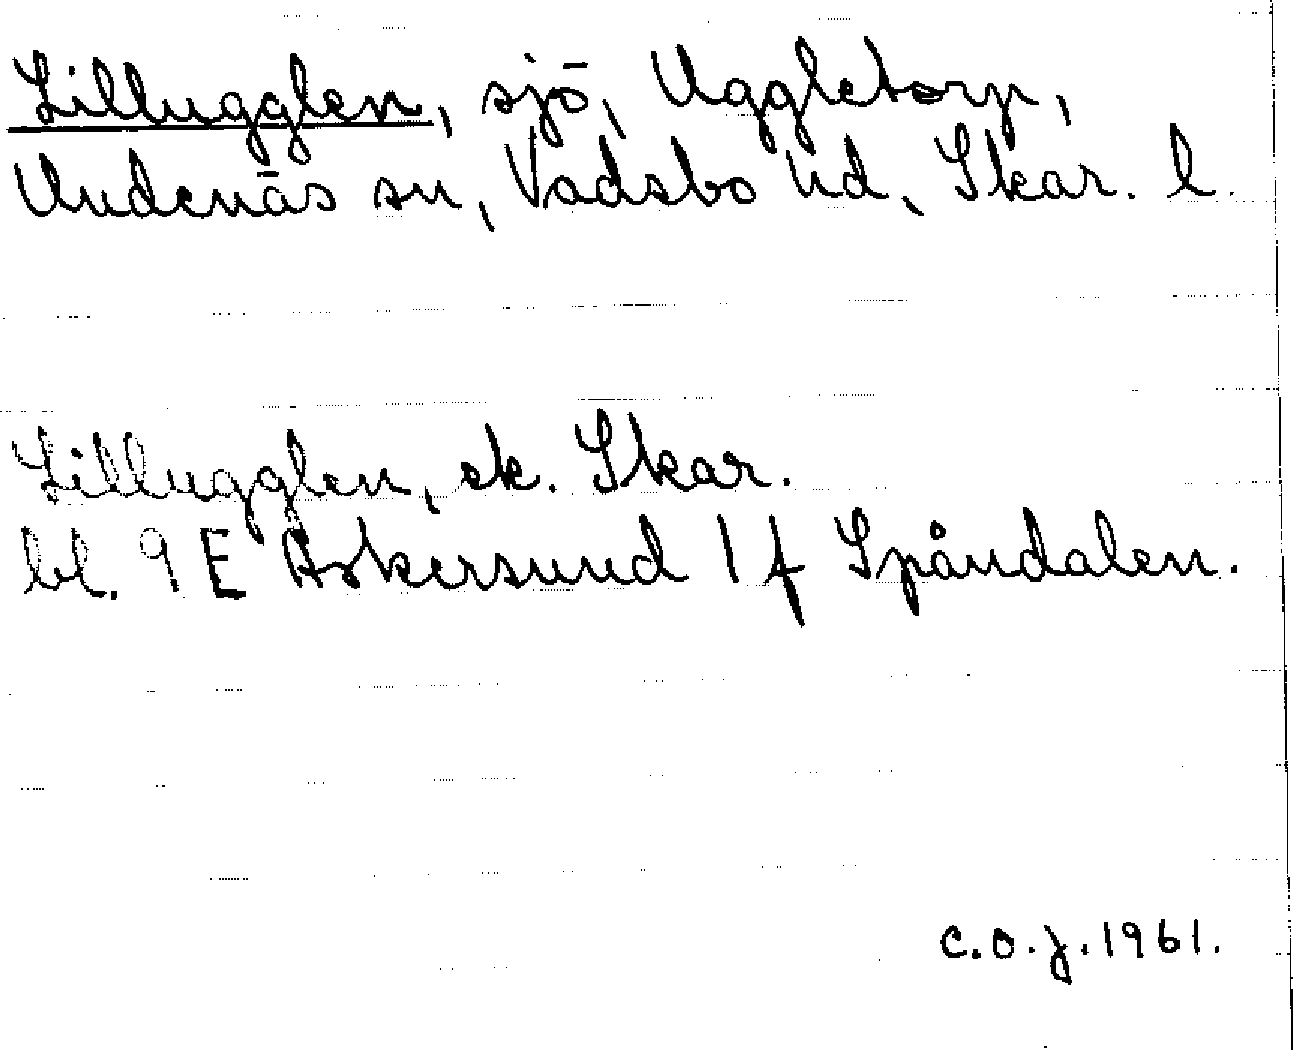 Lillugglen, sjö, Uggletorp,
Undenäs sn, Vadsbo hd, Skar. l.
Lillugglen, ek. Skar.
bl. 9 E Askersund 1 f Spåndalen.
C.O.J. 1961.